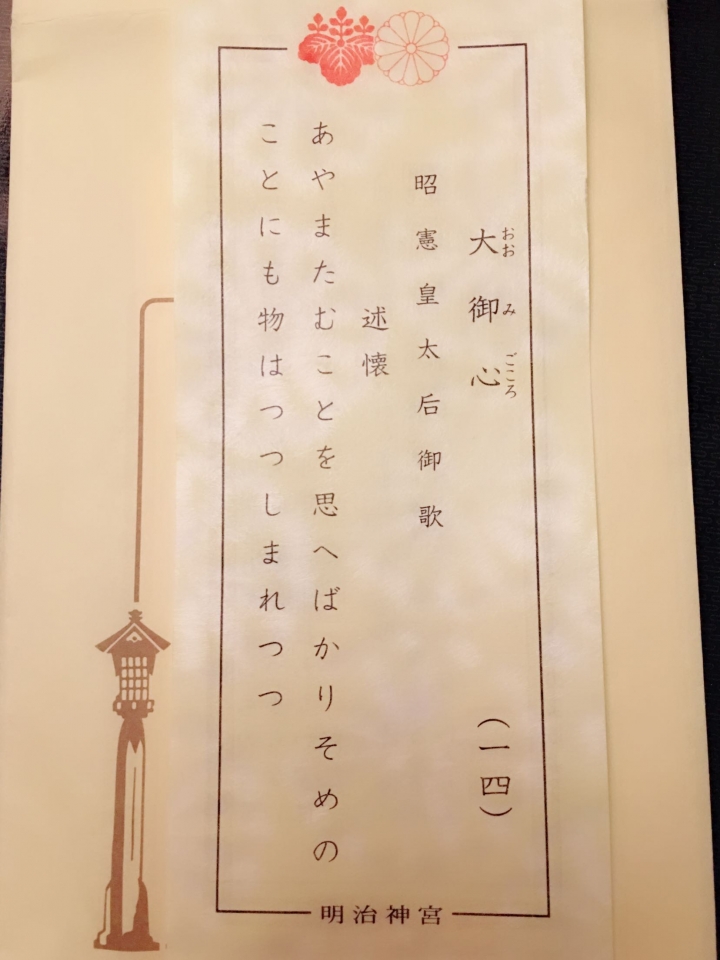 大御心
おおみごころ
（一四）
昭憲皇太后御歌
述懐
あやまたむことを思へばかりそめの
ことにも物はつつしまれつつ
明治神宮